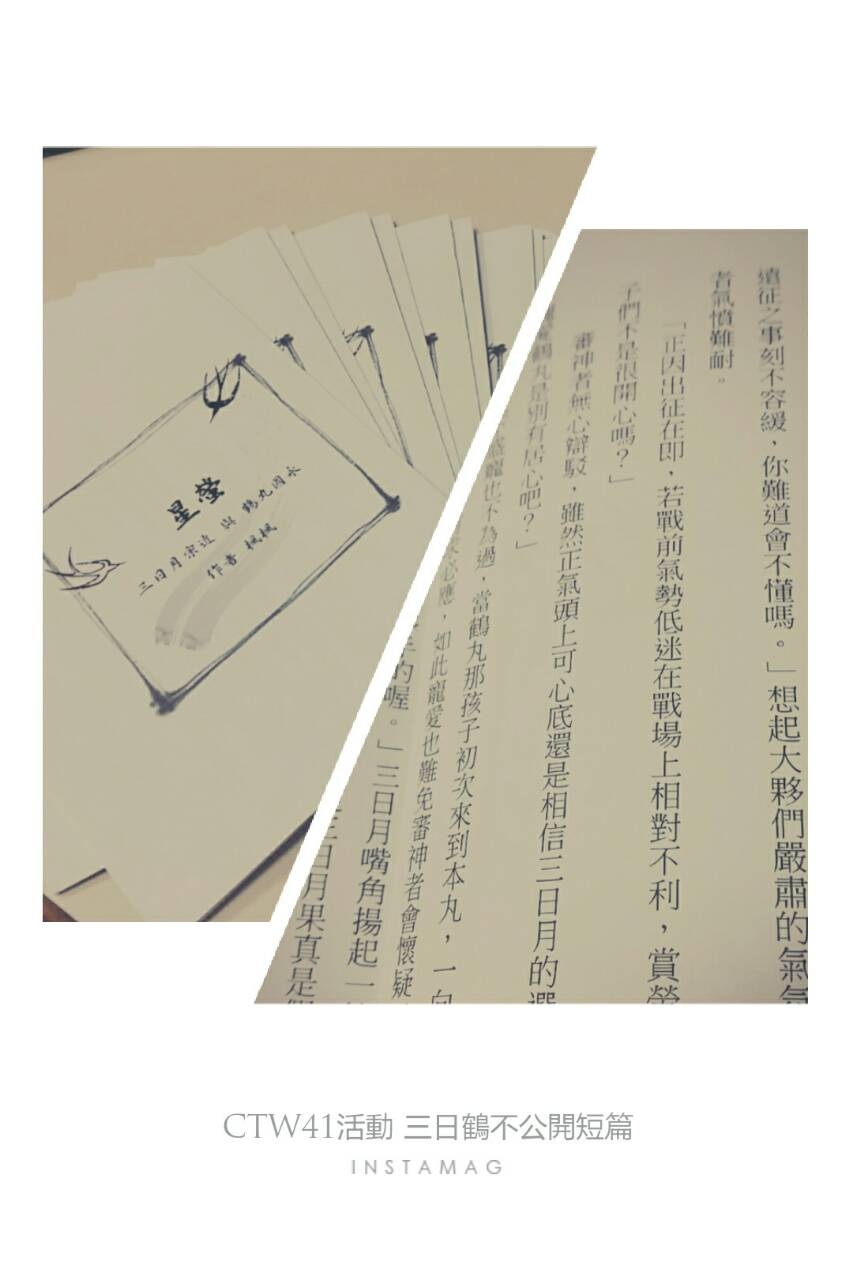 星螢
三日月宗近 與 鶴丸國永
作者 械械
遠征之事刻不容緩，你難道會不懂嗎。」想起大夥們嚴肅的氣
者氣憤難耐。
「正因出征在即，若戰前氣勢低迷在戰場上相對不利，賞螢
子們不是很開心嗎？」
審神者無心辯駁，雖然正氣頭上可心底還是相信三日月的選
鶴丸是別有居心吧？」
寵也不為過，當鶴丸那孩子初次來到本丸，一向
心應，如此寵愛也難免審神者會懷疑
的喔。」三日月嘴角揚起一
三日月果真是
CTW41活動 三日鶴不公開短篇
INSTAMAG